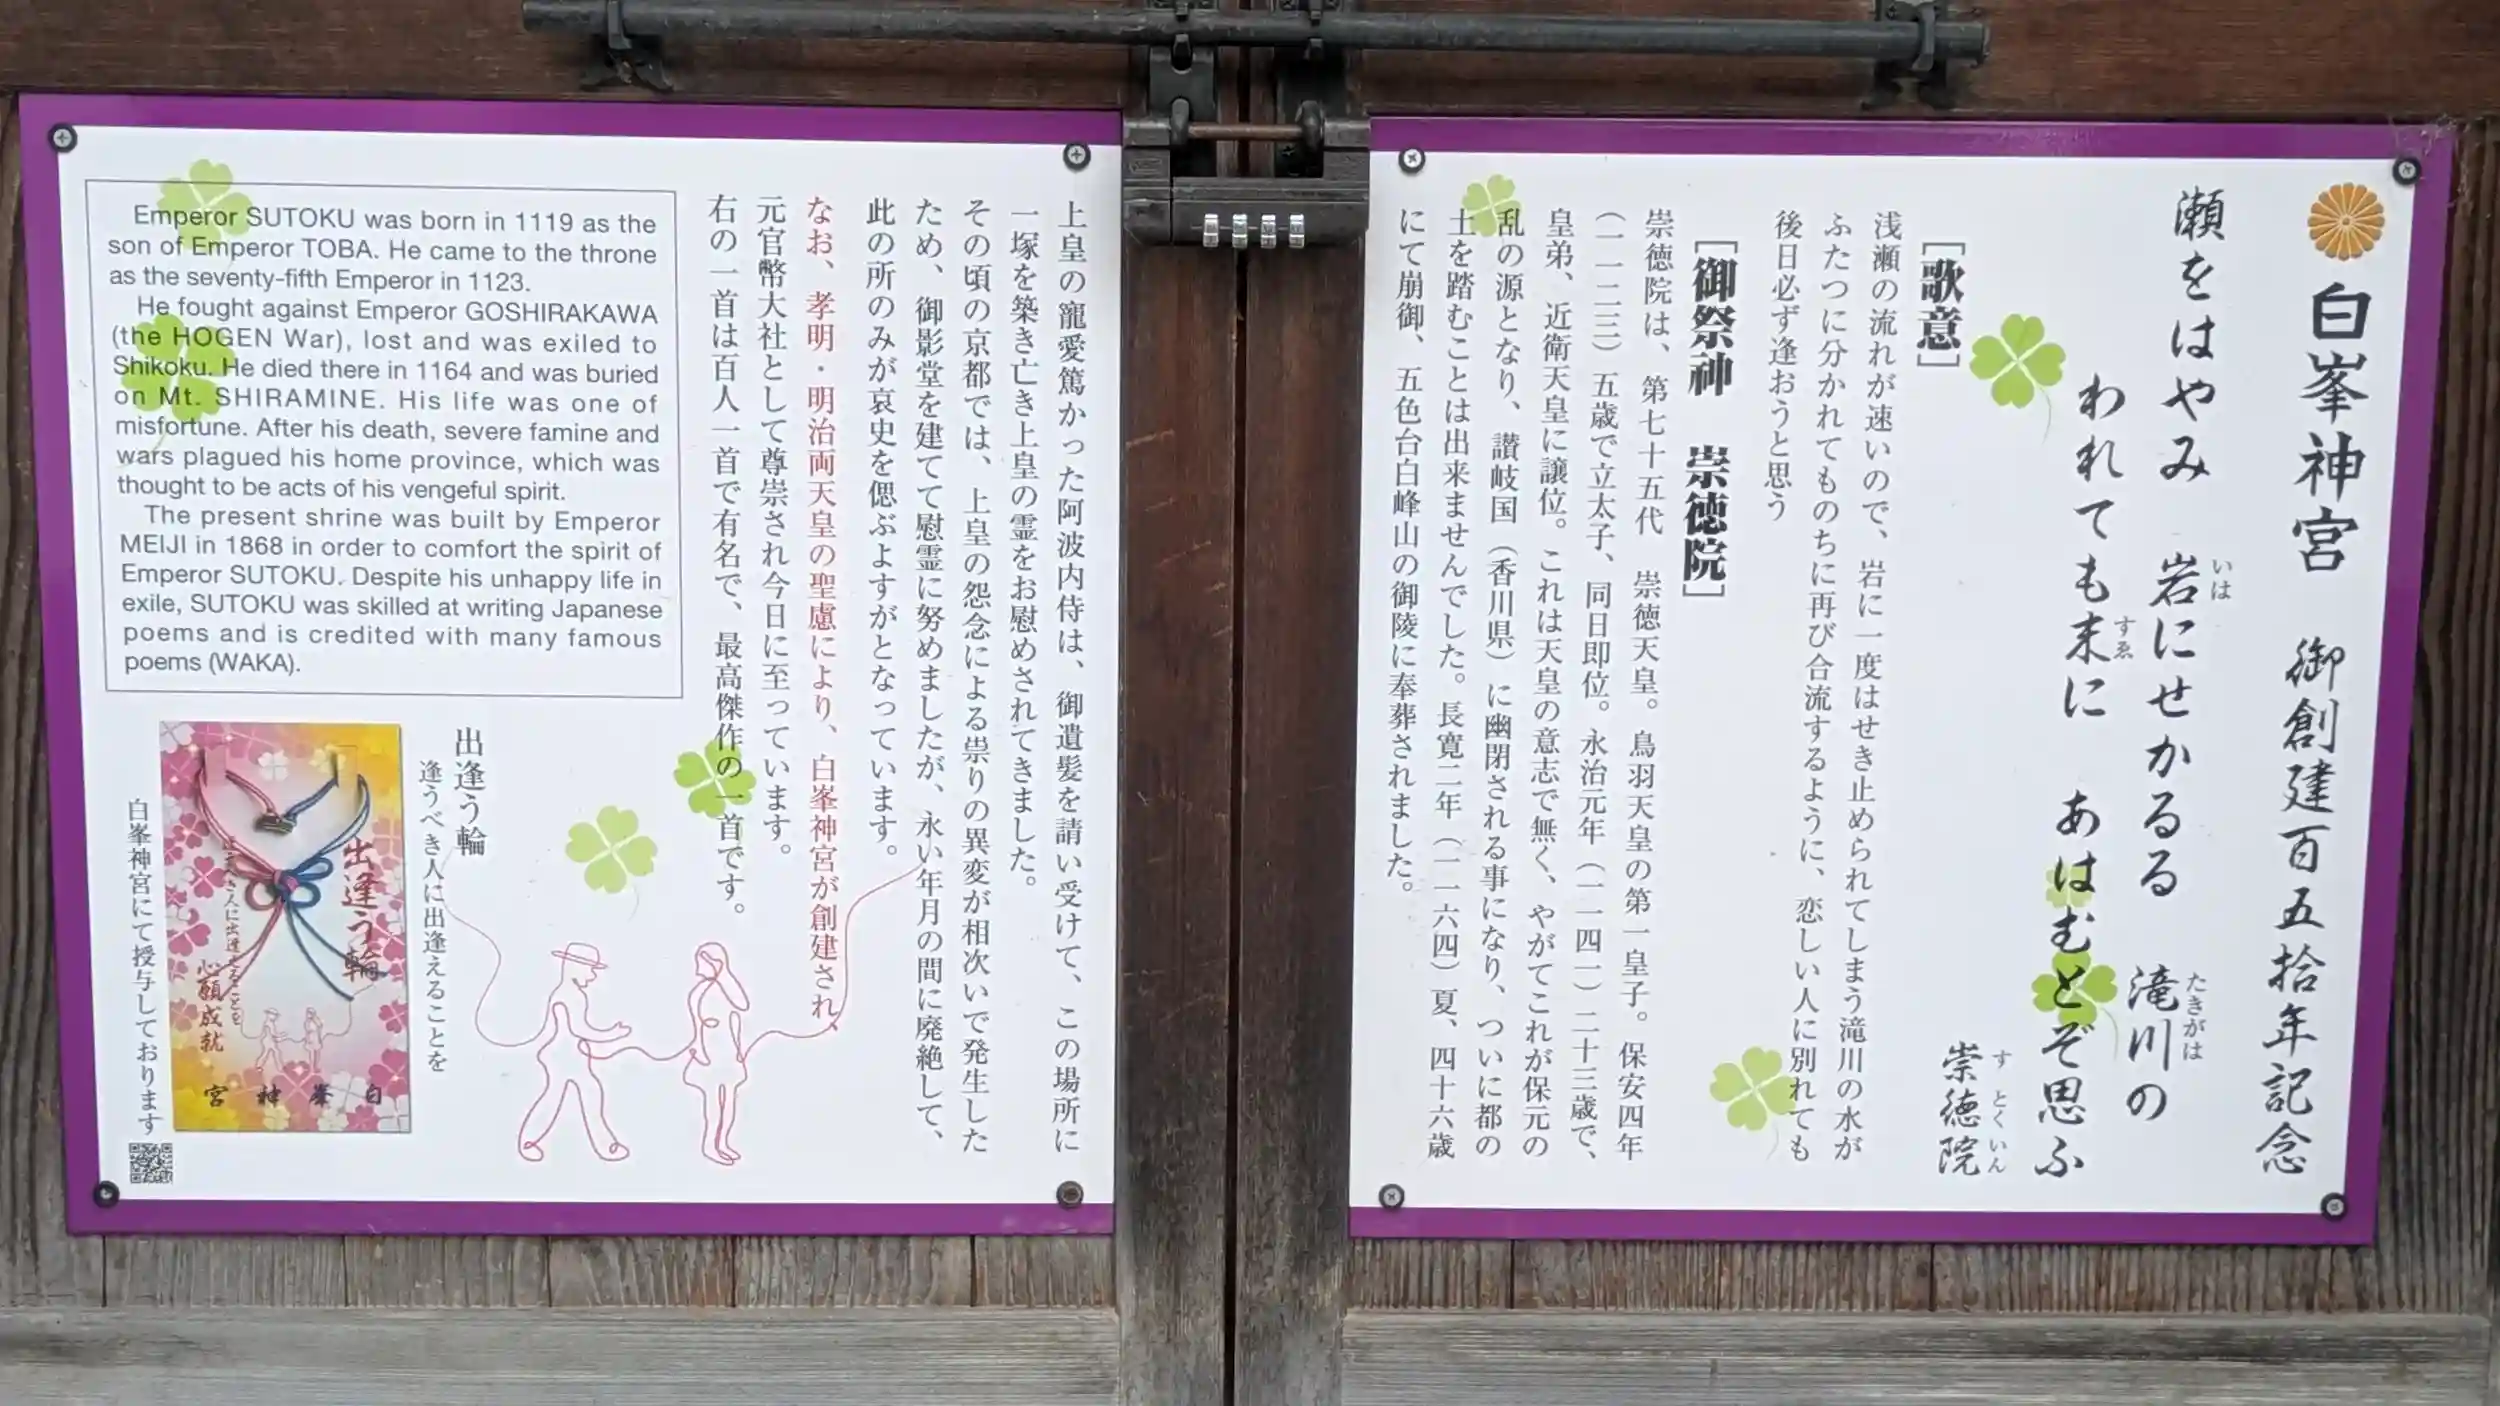 白峯神宮 御創建百五拾年記念
瀬をはやみ 岩にせかるる 滝川の
いは
たきがは
われても末に あはむとぞ思ふ
すゑ
崇徳院
すとくいん
[歌意]
浅瀬の流れが速いので、岩に一度はせき止められてしまう滝川の水が
ふたつに分かれてものちに再び合流するように、恋しい人に別れても
後日必ず逢おうと思う
[御祭神 崇徳院]
崇徳院は、第七十五代 崇徳天皇。鳥羽天皇の第一皇子。保安四年
(一一二三)五歳で立太子、同日即位。永治元年(一一四一)二十三歳で、
皇弟、近衛天皇に譲位。これは天皇の意志で無く、やがてこれが保元の
乱の源となり、讃岐国(香川県)に幽閉される事になり、ついに都の
土を踏むことは出来ませんでした。長寛二年(一一六四)夏、四十六歳
にて崩御、五色台白峰山の御陵に奉葬されました。
上皇の寵愛篤かった阿波内侍は、御遺髪を請い受けて、この場所に
一塚を築き亡き上皇の霊をお慰めされてきました。
その頃の京都では、上皇の怨念による祟りの異変が相次いで発生した
ため、御影堂を建てて慰霊に努めましたが、永い年月の間に廃絶して、
此の所のみが哀史を偲ぶよすがとなっています。
なお、孝明・明治両天皇の聖慮により、白峯神宮が創建され、
元官幣大社として尊崇され今日に至っています。
右の一首は百人一首で有名で、最高傑作の一首です。
Emperor SUTOKU was born in 1119 as the
son of Emperor TOBA. He came to the throne
as the seventy-fifth Emperor in 1123.
He fought against Emperor GOSHIRAKAWA
(the HOGEN War), lost and was exiled to
Shikoku. He died there in 1164 and was buried
on Mt. SHIRAMINE. His life was one of
misfortune. After his death, severe famine and
wars plagued his home province, which was
thought to be acts of his vengeful spirit.
The present shrine was built by Emperor
MEIJI in 1868 in order to comfort the spirit of
Emperor SUTOKU. Despite his unhappy life in
exile, SUTOKU was skilled at writing Japanese
poems and is credited with many famous
poems (WAKA).
出逢う輪
逢うべき人に出逢えることを
出逢う輪
心願成就
白峯神宮
白峯神宮にて授与しております